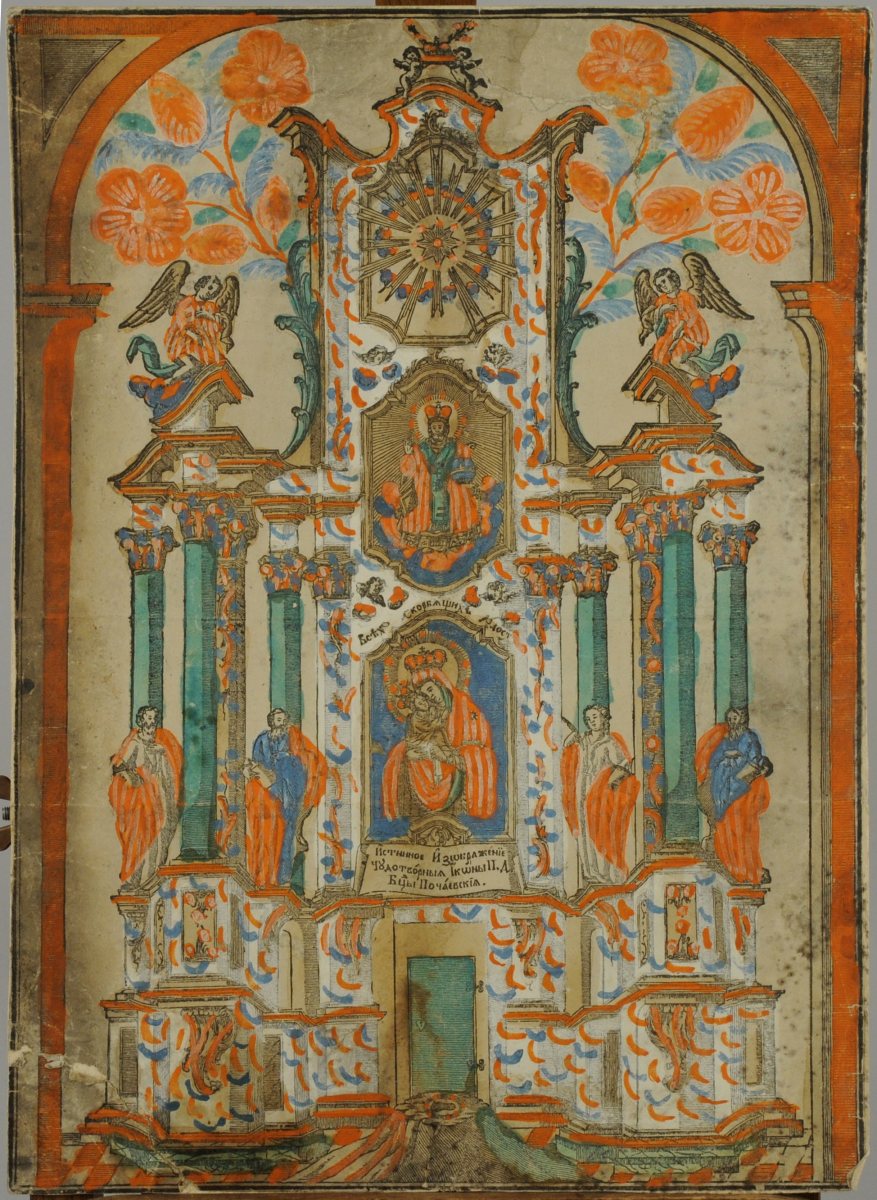 Всѣх Скорбѧщих радос
Истинное Изѡбраженїе
Чудотворныѧ Ікѡны П. Д.
Бц҃ы Почаевскїѧ.